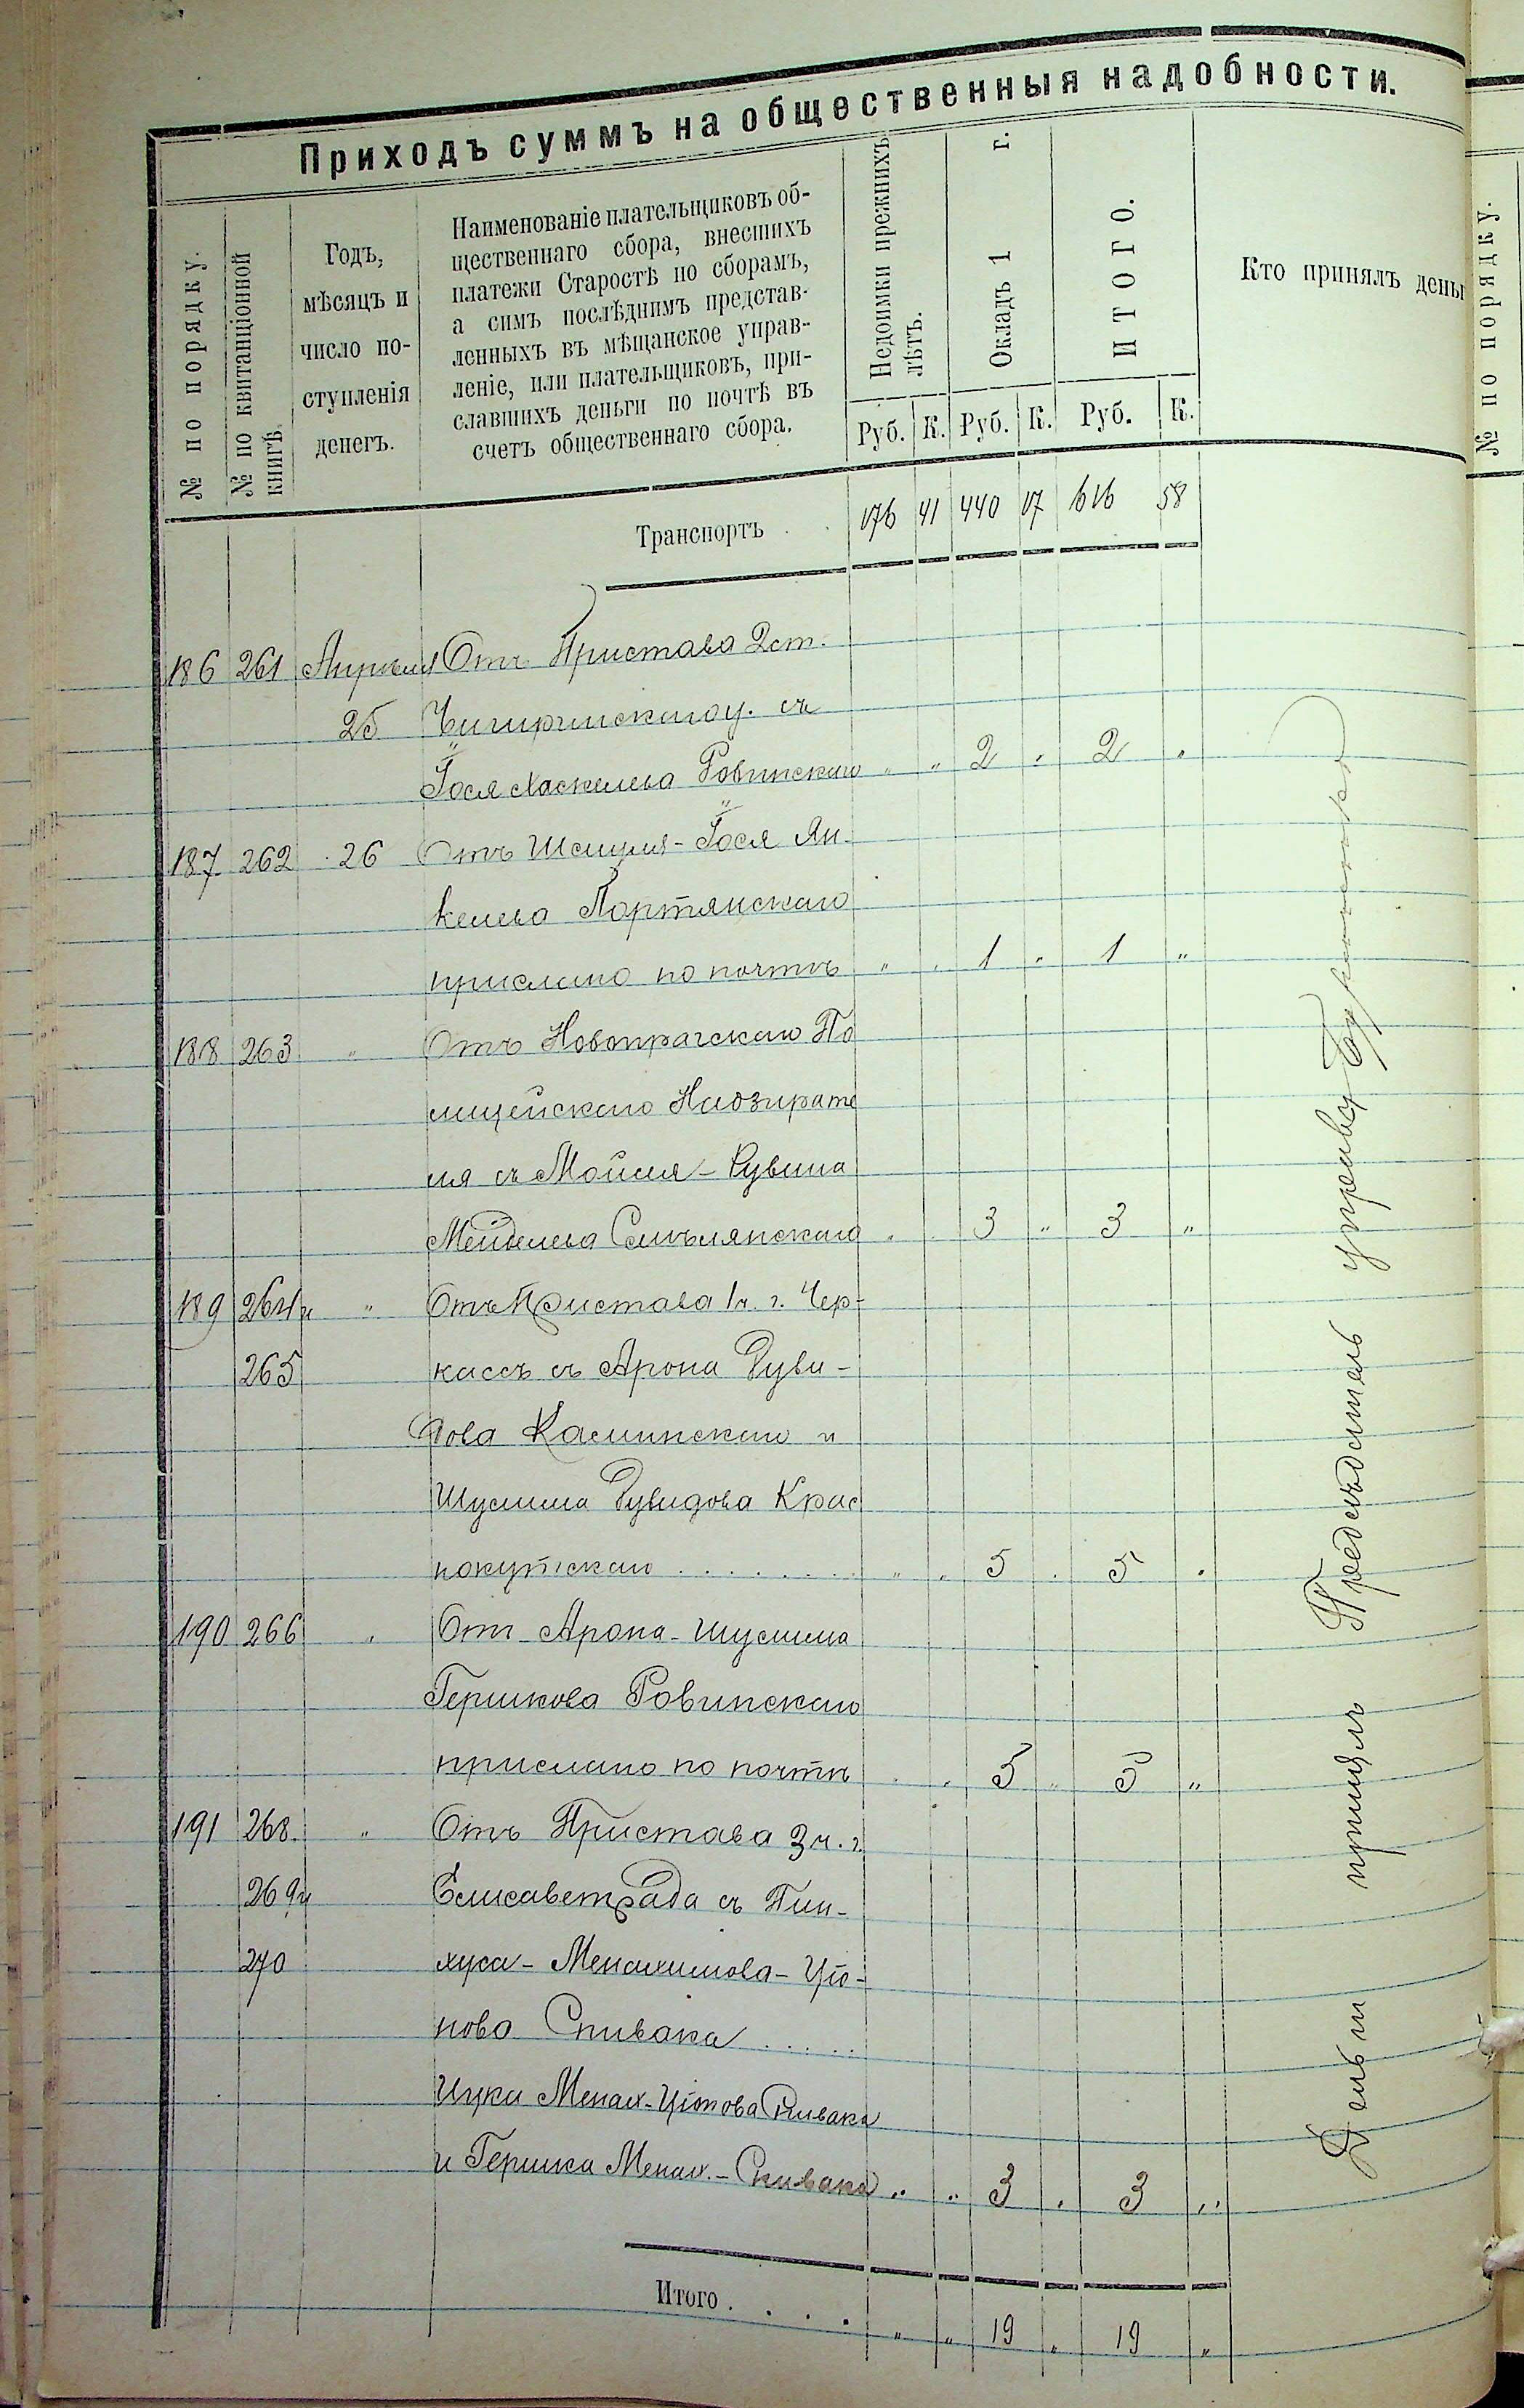 Приходъ суммъ на общественныя надобности.
№ по порядку.
№ по квитанціонной
книгѣ.
Годъ,
мѣсяцъ и
число по-
ступленія
денегъ.
Наименованіе плательщиковъ об-
щественнаго сбора, внесшихъ
платежи Старостѣ по сборамъ,
а симъ послѣднимъ представ-
ленныхъ въ мѣщанское управ-
леніе, или плательщиковъ, при-
славшихъ деньги по почтѣ въ
счетъ общественнаго сбора.
Недоимки прежнихъ
лѣтъ.
Окладъ 1 г.
ИТОГО.
Кто принялъ день
Руб. К. Руб. К. Руб. К.
Транспортъ 176 41 440 17 616 58
186 261 Апрѣля Отъ Пристава 2 ст.
25 Чигиринскаго у. съ
Іося Хаскелева Ровинскаго " " 2 " 2 "
187 262 26 Отъ Шмуля-Іося Ян-
келева Портянскаго
прислано по почтѣ " " 1 " 1 "
188 263 " Отъ Новопражскаго По
лицейскаго Надзирате
ля съ Мойсея-Рувина
Мейделева Смѣлянскаго " " 3 " 3 "
189 264 и " Отъ Пристава 1 ч. г. Чер-
265 кассъ съ Арона Руви-
нова Каминскаго и
Шулима Дувидова Крас
нокутскаго " " 5 " 5 "
190 266 " Отъ Арона-Шулима
Гершкова Ровинскаго
прислано по почтѣ " " 5 " 5 "
191 268 " Отъ Пристава 3 ч. г.
269 и Елисаветграда съ Пин-
270 хуса-Менахимова-
Спивака
Ицки Менах- Спивака
и Гершка Менах.-Спивака " " 3 " 3 "
Итого " " 19 " 19 "
Деньги принялъ Предсѣдатель управы
№ по порядку.